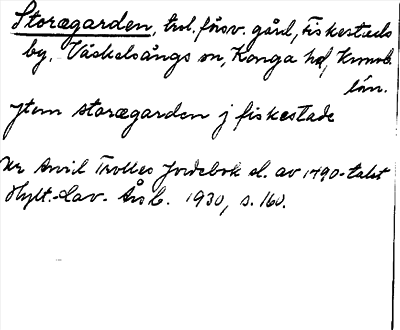 Storægarden, trol. försv. gård, Fiskestads
by, Väckelsångs sn, Konga hd, Kronob.
län.
Jtem storægarden j fiskestade
Ur Arvid Trolles Jordebok sl. av 1490-talet
Hylt.-Cav. Årsb. 1930, s. 160.